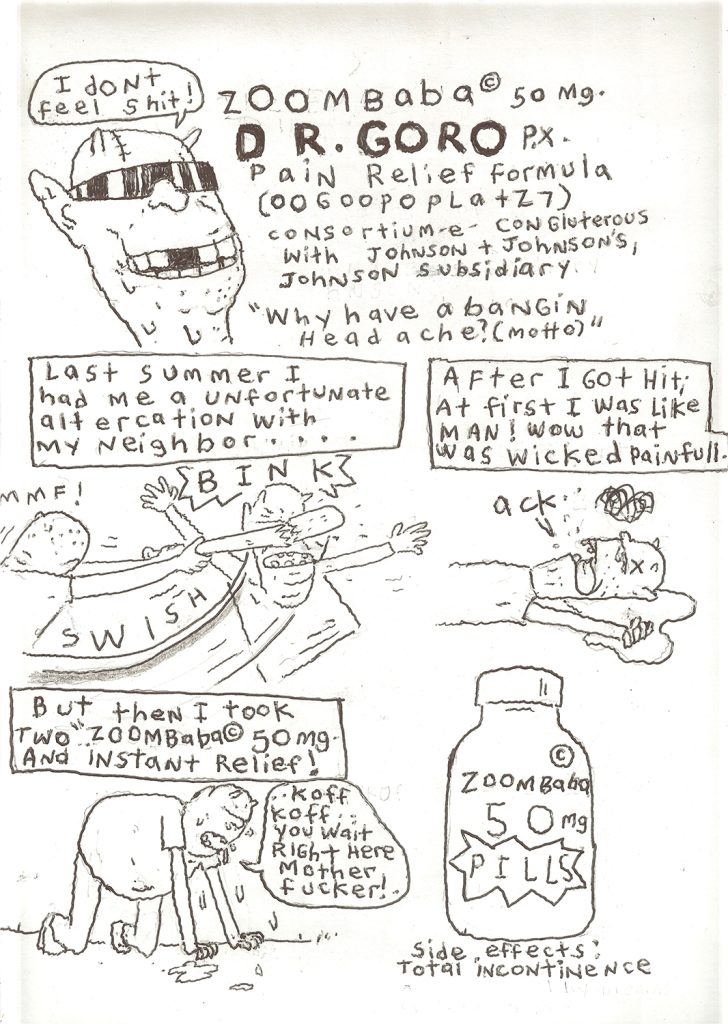 I dont
feel shit!
ZOOMBaba© 50 mg.
DR.GORO P.X.
Pain Relief Formula
(OOGOOPOPLatZ7)
Consortium-e- Congluterous
With Johnson + Johnson's,
Johnson subsidiary
"Why have a bangin
Head ache? (motto)"
Last summer I
had me a unfortunate
altercation with
my neighbor....
After I Got Hit;
At first I was like
MAN! Wow that
was wicked painfull.
BINK
MMF!
SWISH
ack
x
But then I took
two "ZOOMBaba© 50mg.
And instant Relief!
..Koff
Koff..
you wait
Right Here
Mother
fucker!.
©
ZOOMBaba
50mg
PILLS
Side effects:
Total incontinence